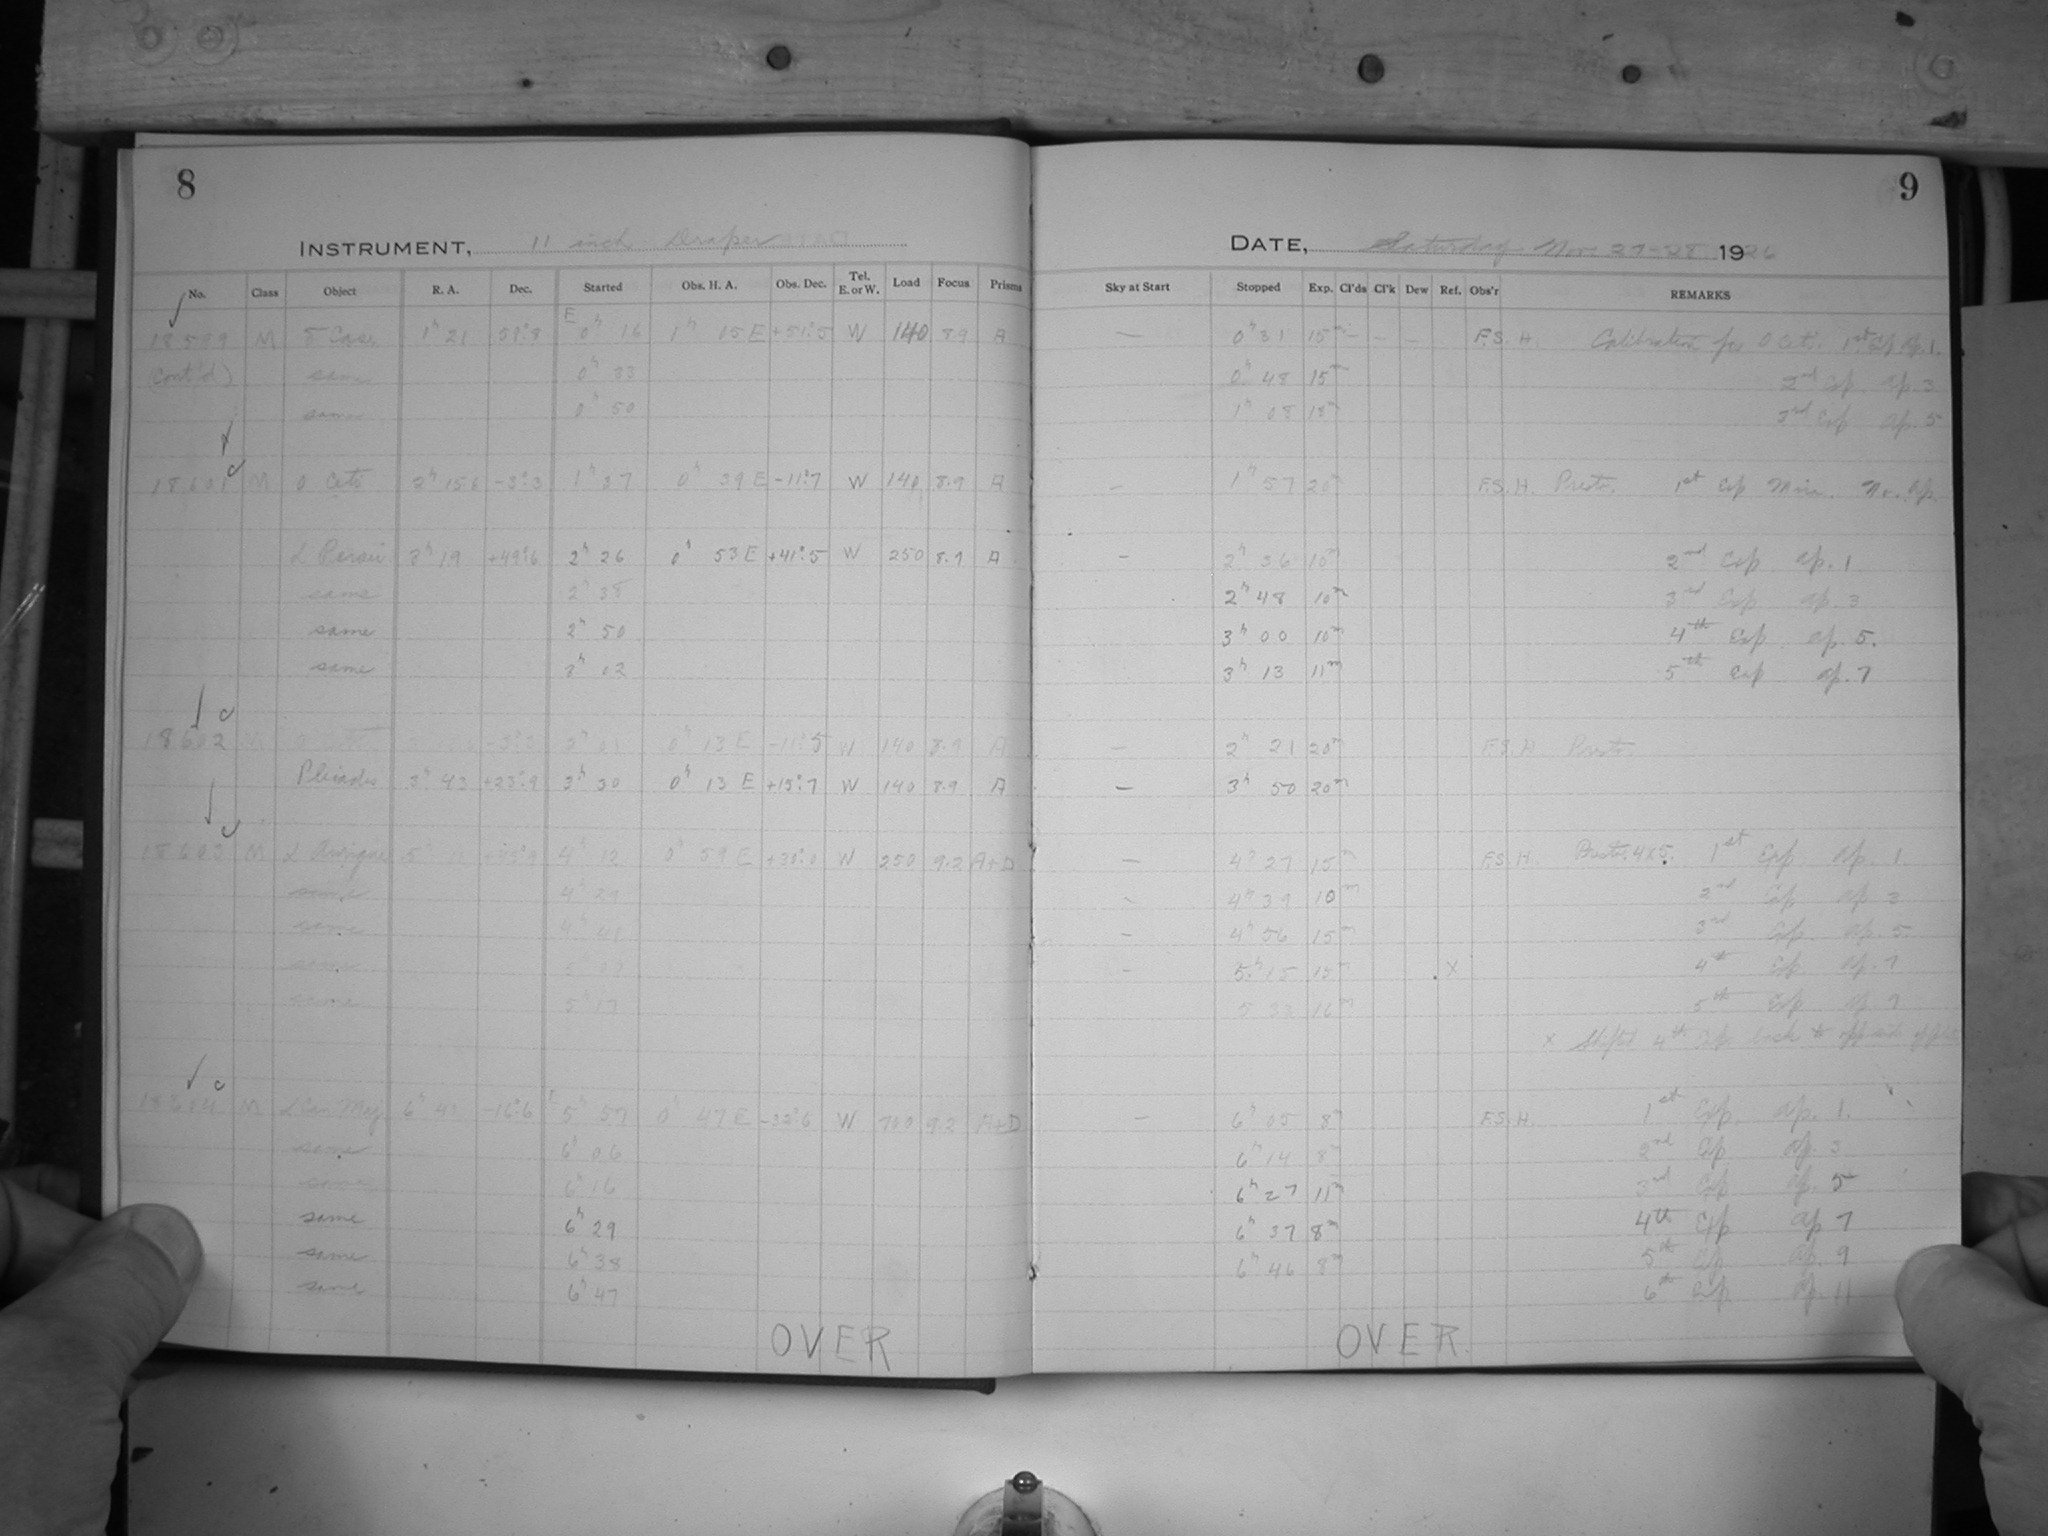 8
INSTRUMENT, 11 inch Draper
No. Class Object R. A. Dec. Started Obs. H. A. Obs. Dec. Tel. E. or W. Load Focus Prisms
M δ Cass. 1h 21 E 0h 16 1h 15 E +51°.5 W 140 8.9 A
(Cont'd) same 0h 33
same 0h 50
18601 M o Ceti -3°.3 1h 37 0h 39 E -11°.7 W 140 8.9 A
α Persei 3h 19 +49°.6 2h 26 0h 53 E +41°.5 W 250 8.9 A
same 2h 38
same 2h 50
same 3h 02
18602 -3°.3 2h 01 0h 13 E -11°.5 W 140 8.9 A
Pleiades 3h 43 +23°.9 3h 30 0h 13 E +15°.7 W 140 8.9 A
18603 M α Aurigae 5h 4h 12 0h 59 E W 250 9.2 A+D
same 4h 29
same 4h 41
same
same 5h 17
18604 M α Can. Maj. 6h 41 -16°.6 E 5h 57 0h 47 E W 700 9.2 A+D
same 6h 06
same 6h 16
same 6h 29
same 6h 38
same 6h 47
OVER
9
DATE, Saturday Nov. 27-28 1926
Sky at Start Stopped Exp. Cl'ds Cl'k Dew Ref. Obs'r REMARKS
— 0h 31 15m — — — F.S.H. Calibration for o Ceti. 1st Exp ap. 1.
0h 48 15m 2nd Exp ap. 3
1h 08 18m 3rd Exp ap. 5
— 1h 57 20m F.S.H. Presto. 1st Exp Mira. No. ap.
— 2h 36 10m 2nd Exp ap. 1
2h 48 10m 3rd Exp ap. 3
3h 00 10m 4th Exp ap. 5.
3h 13 11m 5th Exp ap. 7
— 2h 21 20m F.S.H. Presto.
— 3h 50 20m
— 4h 27 15m F.S.H. Presto. 4x5. 1st Exp ap. 1.
- 4h 39 10m 2nd Exp ap. 3
— 4h 56 15m 3rd Exp. ap. 5.
- 5h 15 15m X 4th Exp ap. 7
5 33 16m 5th Exp ap. 7
x Shifted 4th Exp back to opposite
— 6h 05 8m F.S.H. 1st Exp. ap. 1.
6h 14 8m 2nd Exp ap. 3
6h 27 11m 3rd Exp ap. 5
6h 37 8m 4th Exp ap 7
6h 46 8m 5th Exp ap. 9
6th Exp ap. 11
OVER.